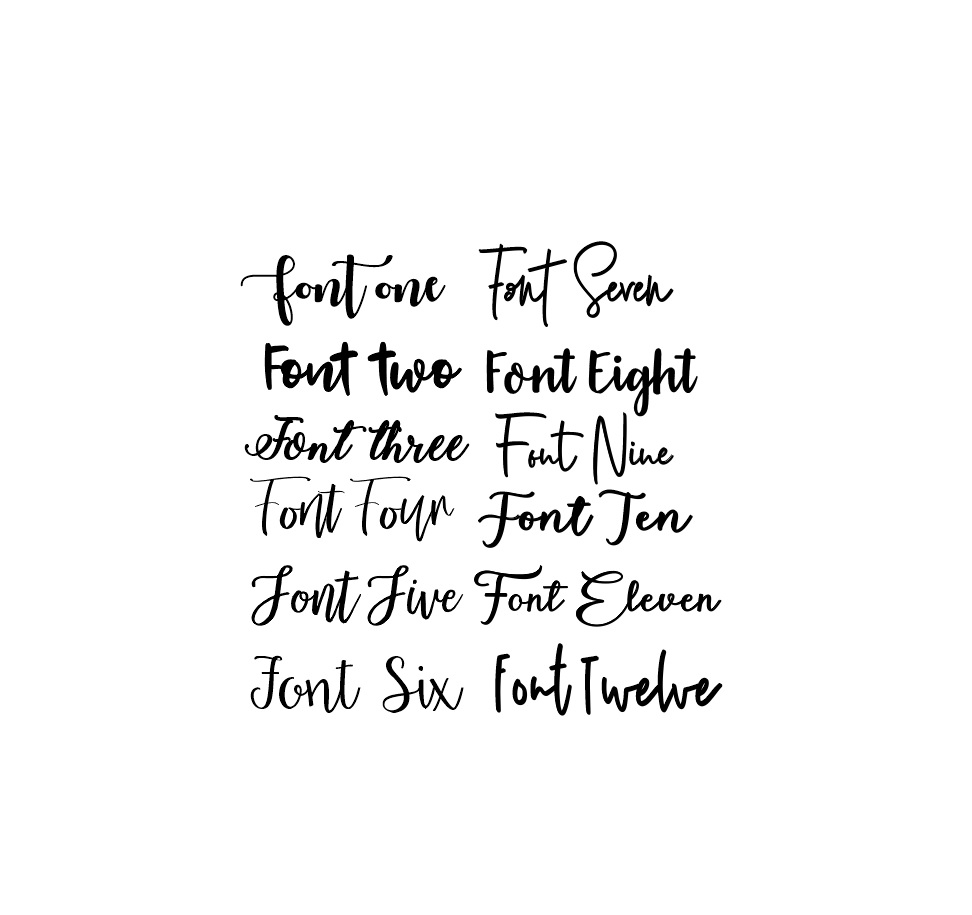 font one
Font two
Font three
Font Four
Font Five
Font Six
Font Seven
Font Eight
Font Nine
Font Ten
Font Eleven
Font Twelve